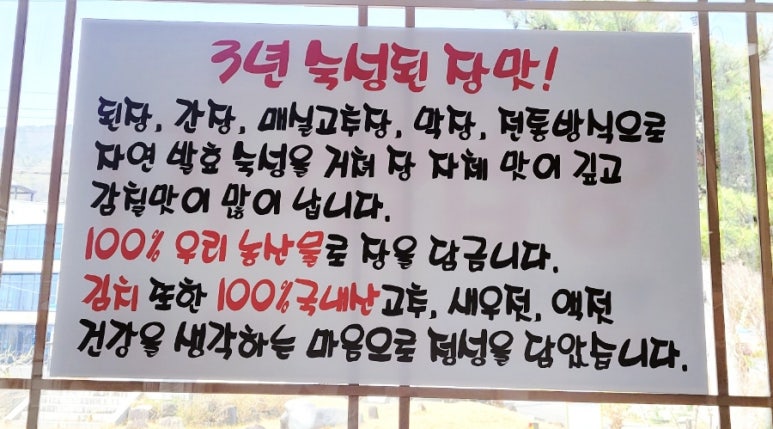 3년 숙성된 장맛!
된장, 간장, 매실고추장, 막장, 전통방식으로
자연 발효 숙성을 거쳐 장 자체 맛이 깊고
감칠맛이 많이 납니다.
100% 우리 농산물로 장을 담금니다.
김치 또한 100%국내산고추, 새우젓, 액젓
건강을 생각하는 마음으로 정성을 담았습니다.